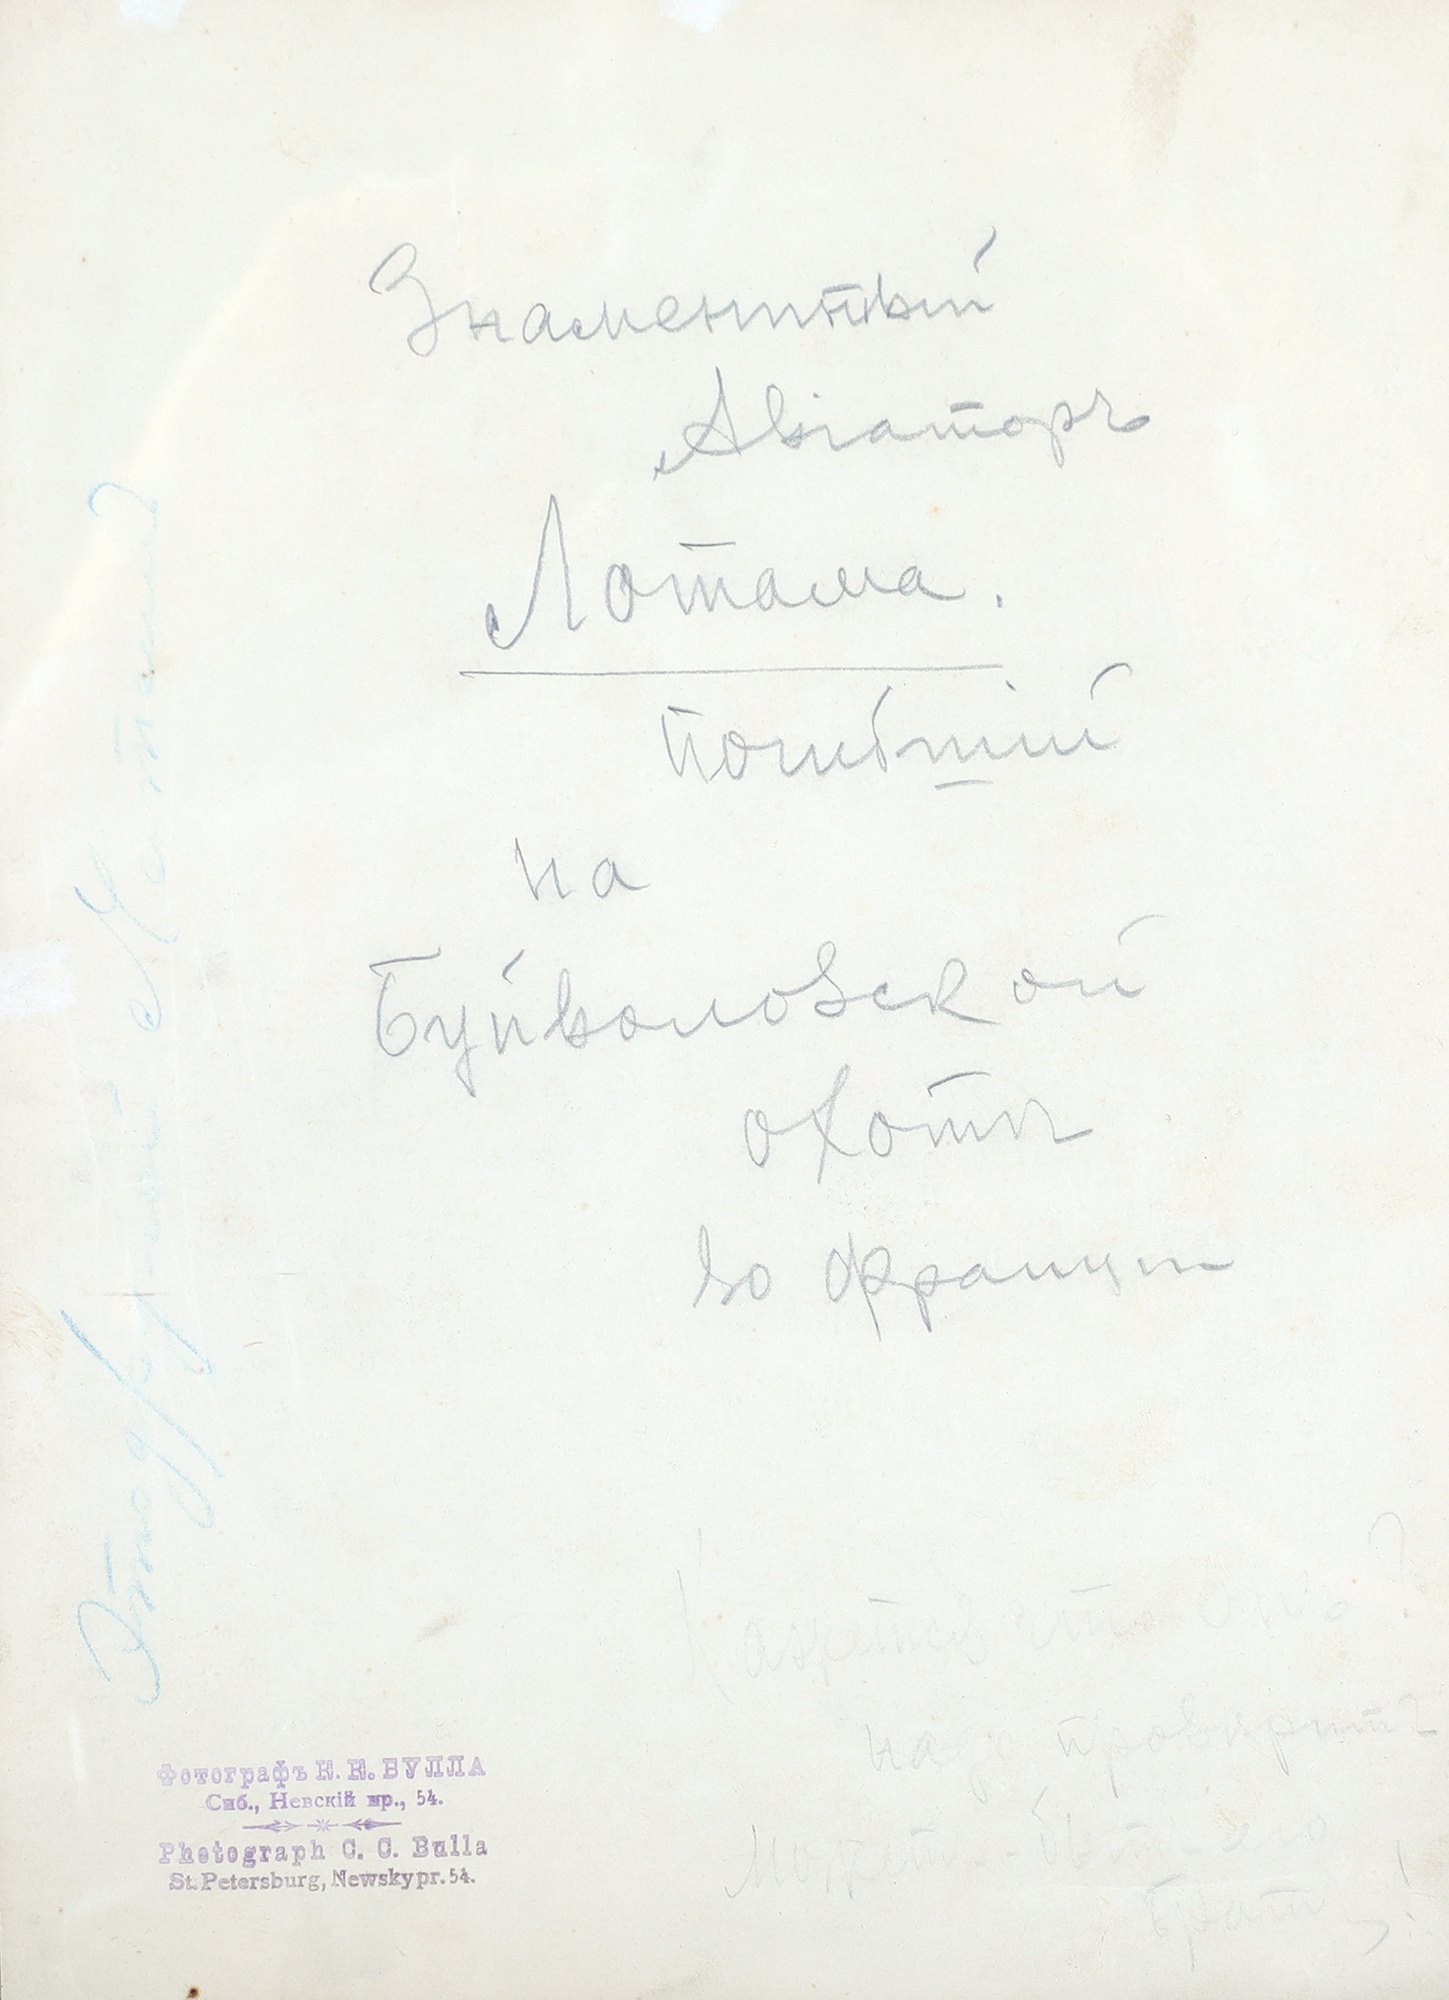 Знаментный
Авіаторъ
Лотама.
погибшій
на
Буйволовской
охотѣ
во Франціи
Кажется что Онъ?
надо провѣрить
Можетъ-быть его
братъ!
Фотографъ К. К. БУЛЛА
Спб., Невскій пр., 54.
Photograph C. C. Bulla
St. Petersburg, Newsky pr. 54.